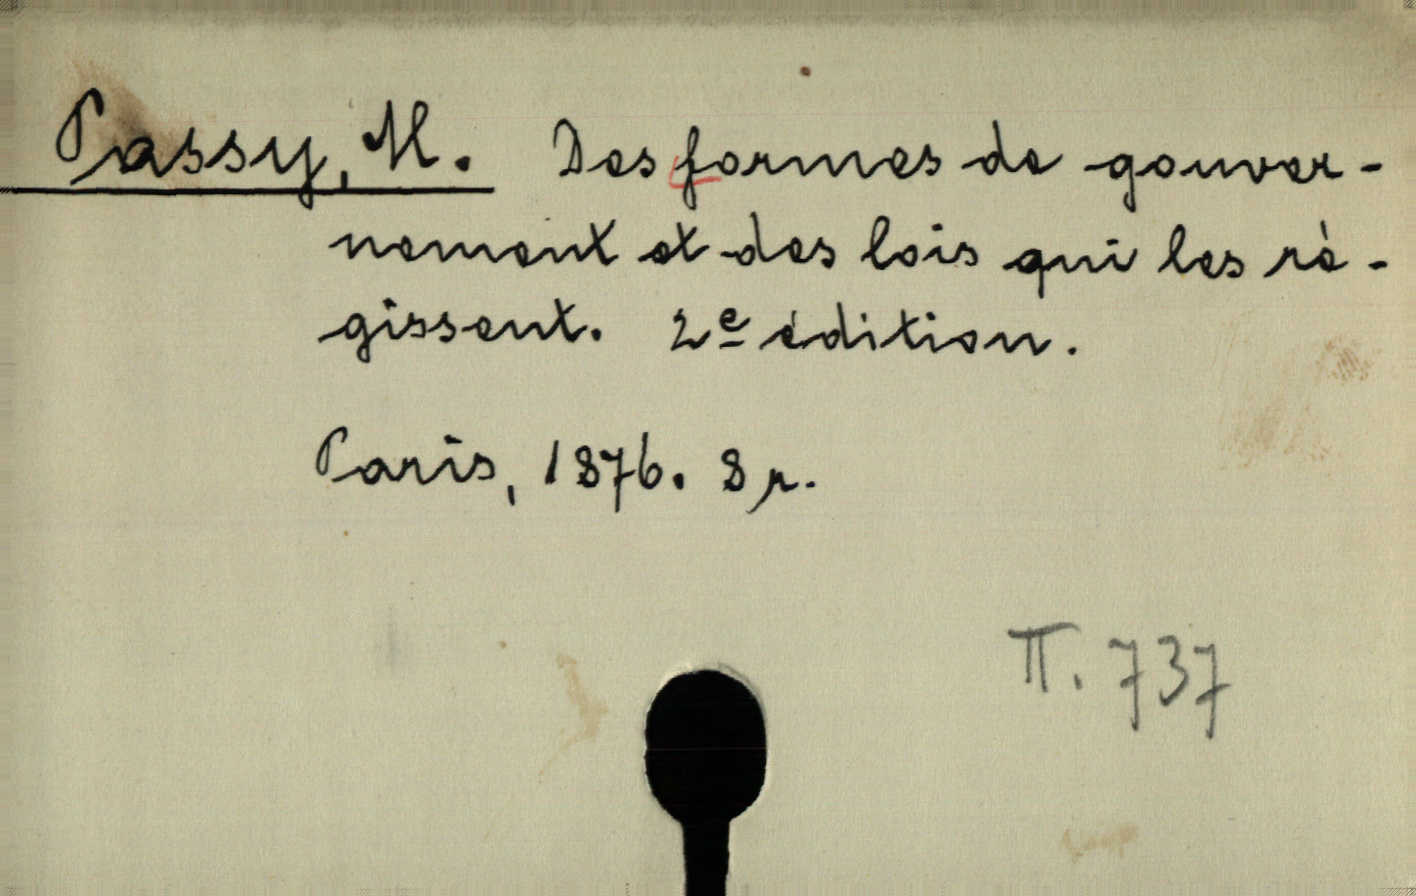 Passy, M. Des formes de gouver-
nement et des lois qui les ré-
gissent. 2e édition.
Paris, 1876. 8 r.
II. 737